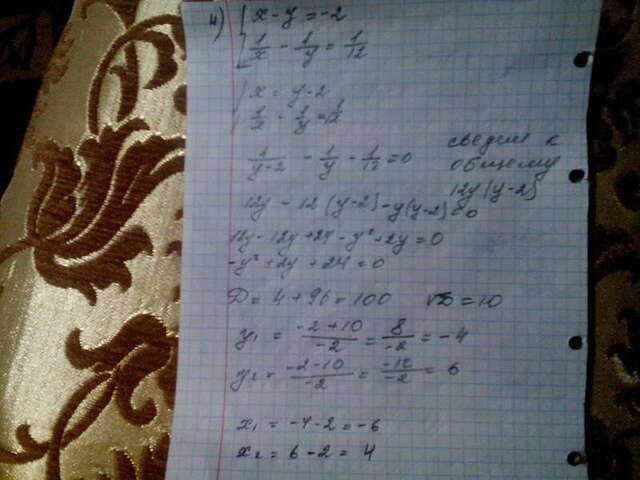 4) { x - y = -2
1/x - 1/y = 1/12
{ x = y - 2
1/x - 1/y = 1/12
1/(y-2) - 1/y - 1/12 = 0 сведем к
общему
12y(y-2)
12y - 12(y-2) - y(y-2) = 0
12y - 12y + 24 - y² + 2y = 0
-y² + 2y + 24 = 0
D = 4 + 96 = 100 √D = 10
y₁ = (-2+10)/-2 = 8/-2 = -4
y₂ = (-2-10)/-2 = -12/-2 = 6
x₁ = -4-2 = -6
x₂ = 6-2 = 4